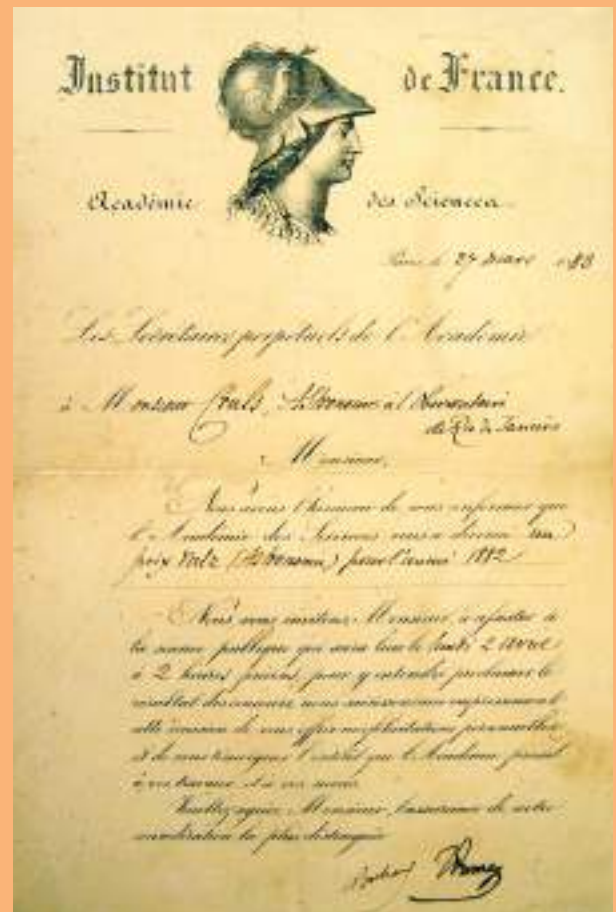 Institut de France.
Académie des Sciences
Paris, le 27 Mars 1883
Les Secrétaires perpétuels de l'Académie
à Monsieur Cruls, Astronome à l'Observatoire
de Rio de Janeiro
Monsieur,
Nous avons l'honneur de vous informer que
l'Académie des Sciences vous a décerné un
prix Valz (Astronomie) pour l'année 1882
Nous vous invitons, Monsieur, à assister à
la séance publique qui aura lieu le lundi 2 avril
à 2 heures précises, pour y entendre proclamer le
résultat des concours, nous
cette occasion de vous offrir nos félicitations personnelles
et de vous témoigner l'intérêt que l'Académie prend
à vos travaux et à vos succès
Veuillez agréer, Monsieur, l'assurance de notre
considération la plus distinguée